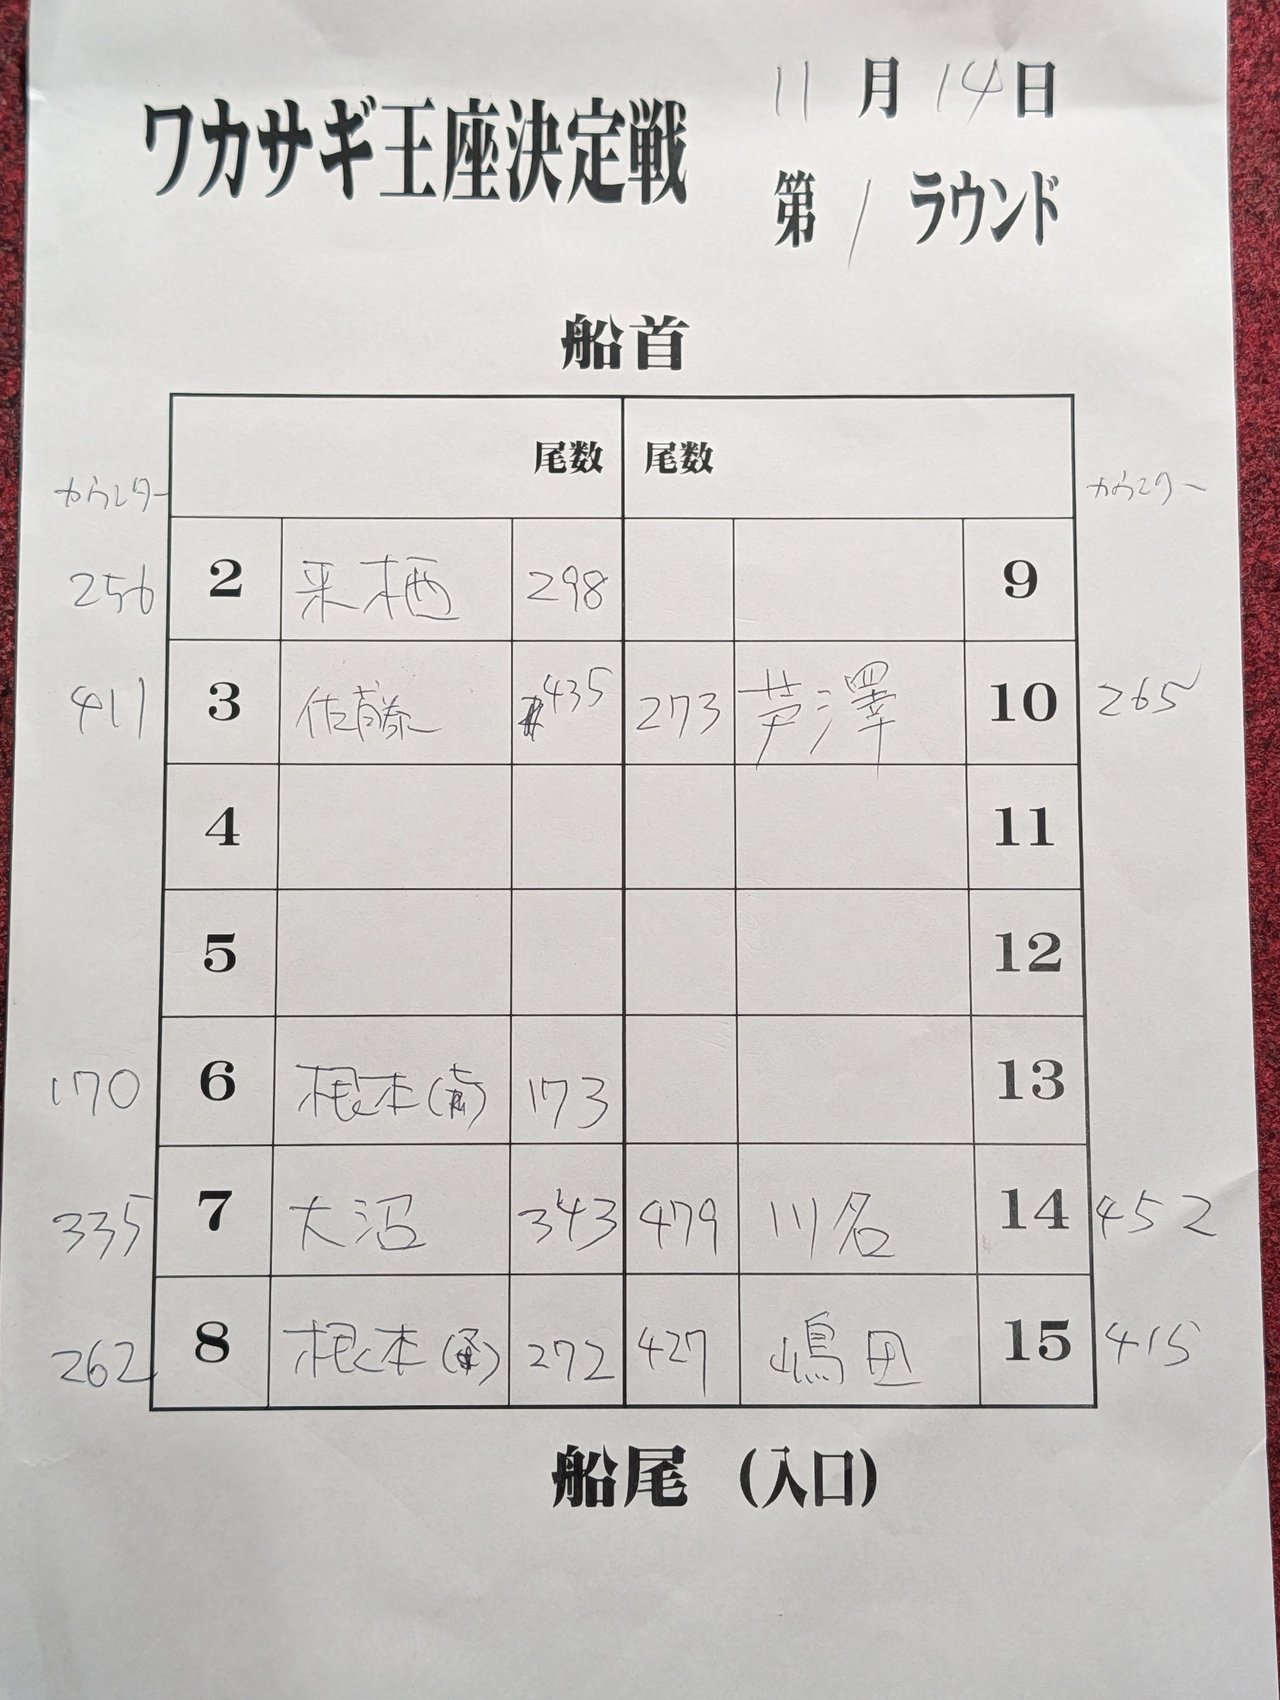 ワカサギ王座決定戦
11月14日
第1ラウンド
船首
尾数 尾数
カウンター カウンター
256 2 来栖 298 9
411 3 佐藤 435 273 芦澤 10 265
4 11
5 12
170 6 根本 173 13
335 7 大沼 343 479 川名 14 452
262 8 根本 272 427 嶋田 15 415
船尾 (入口)